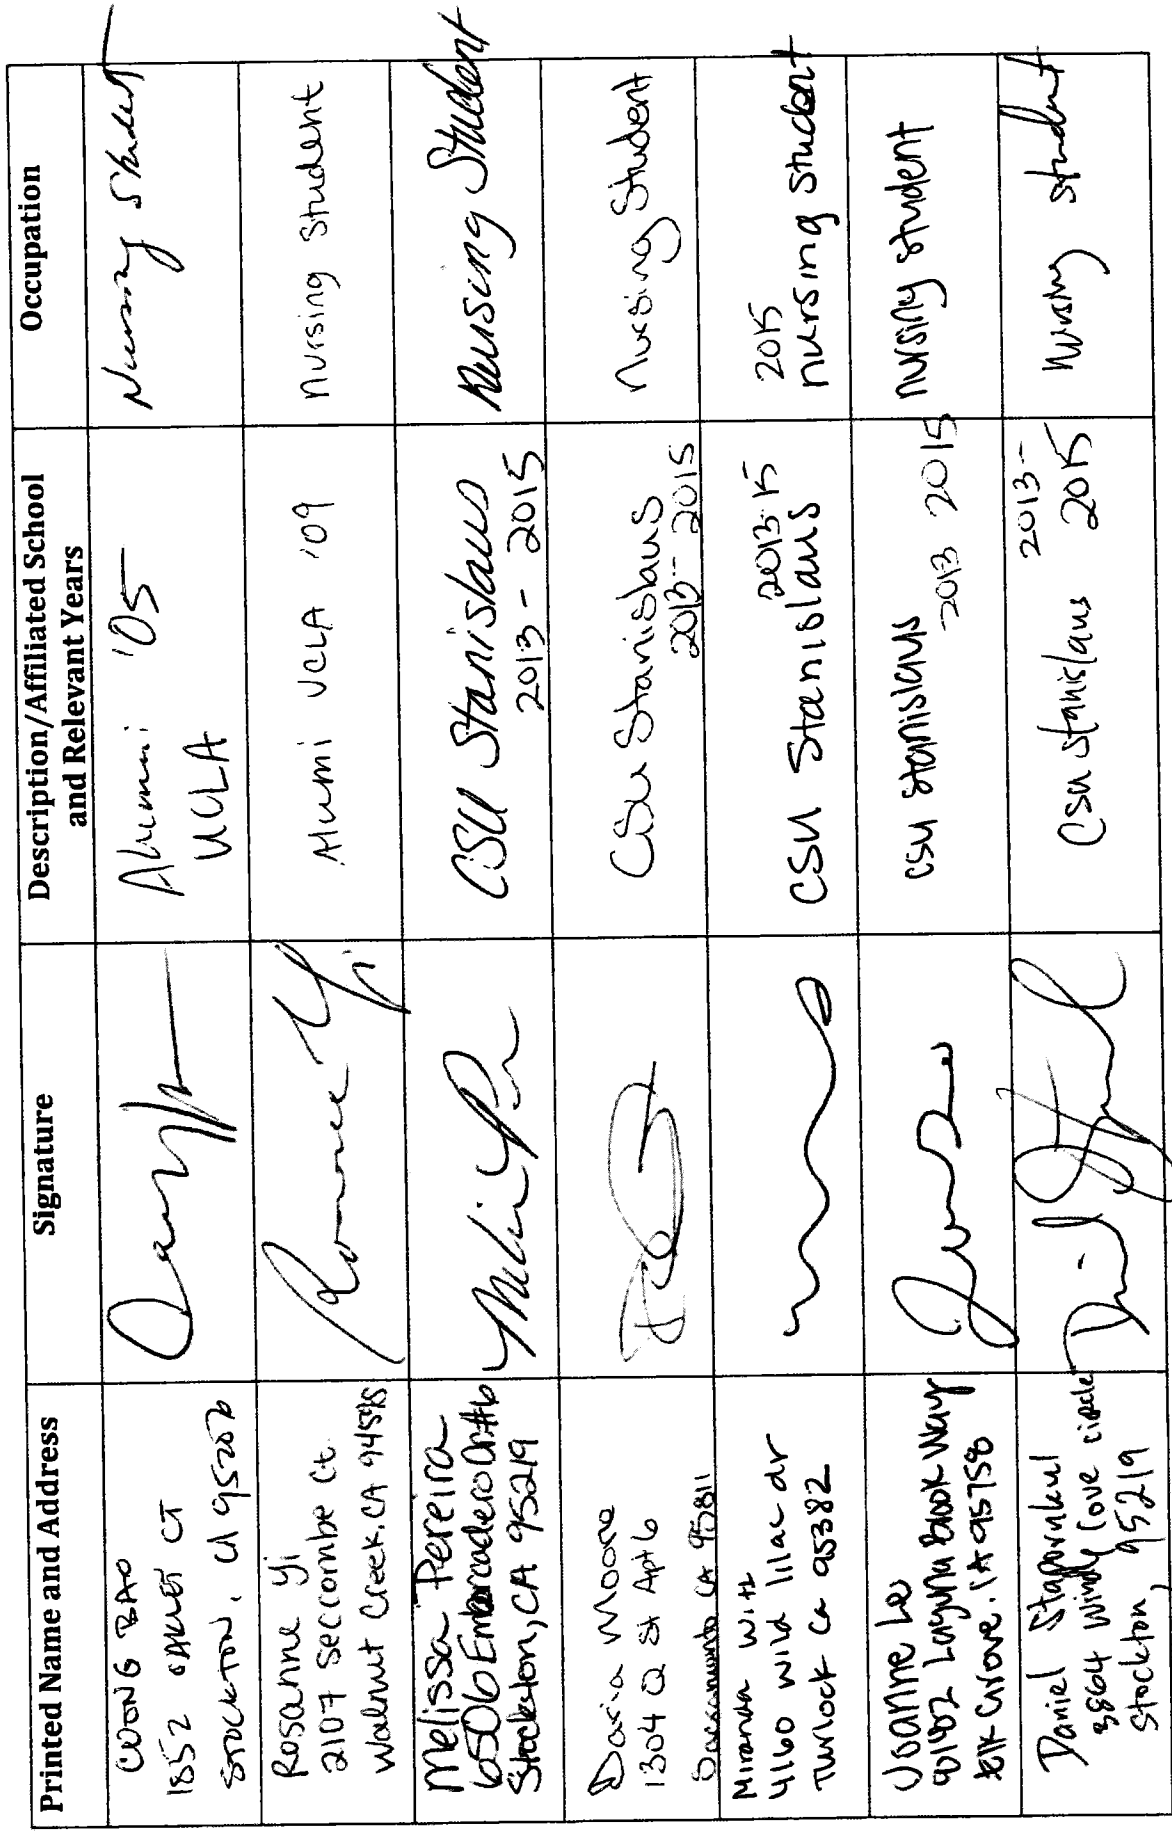 Printed Name and Address
Signature
Description/Affiliated School
and Relevant Years
Occupation
BAO
1852 CT
STOCKTON,
Alumni '05
UCLA
Nursing Student
Rosanne Yi
2107 Seccombe Ct.
Walnut Creek, CA
Alumi UCLA '09
Nursing Student
Melissa Pereira
6506 Embarcadero Dr #6
Stockton, CA 95219
CSU Stanislaus
2013 - 2015
Nursing Student
Daria Moore
1304 Q St Apt 6
Sacramento CA 95811
CSU Stanislaus
2013 - 2015
Nursing Student
Miranda Witt
4160 wild lilac dr
Turlock Ca 95382
2013-15
CSU Stanislaus
2015
nursing student
Joanne Le
Laguna Brook Way
Elk Grove, CA 95758
CSU Stanislaus
2013 2015
nursing student
Daniel
3864 Windy Cove circle
Stockton, 95219
2013-
CSU Stanislaus 2015
Nursing student